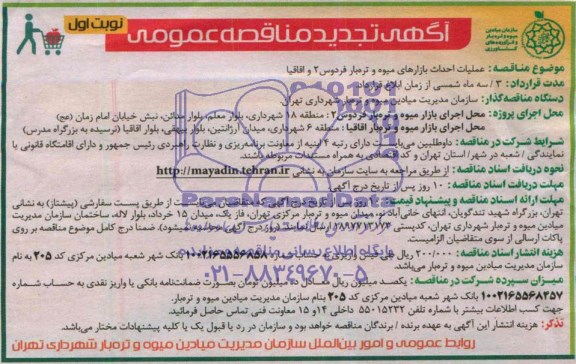 نوبت اول
آگهی تجدید مناقصه عمومی
سازمان میادین میوه و تره‌بار و فرآورده‌های کشاورزی
موضوع مناقصه: عملیات احداث بازارهای میوه و تره‌بار فردوس ۲ و اقاقیا
مدت قرارداد: ۳ / سه ماه شمسی از زمان ابلاغ قرارداد
دستگاه مناقصه‌گذار: سازمان مدیریت میادین میوه و تره‌بار شهرداری تهران
محل اجرای پروژه: محل اجرای بازار میوه و تره‌بار فردوس ۲: منطقه ۱۸ شهرداری، بلوار معلم، بلوار مدائن، نبش خیابان امام زمان (عج)
محل اجرای بازار میوه و تره‌بار اقاقیا: منطقه ۶ شهرداری، میدان آرژانتین، بلوار بیهقی، بلوار اقاقیا (نرسیده به بزرگراه مدرس)
شرایط شرکت در مناقصه: داوطلبین می‌بایست دارای رتبه ۴ ابنیه از معاونت برنامه‌ریزی و نظارت راهبردی رئیس جمهور و دارای اقامتگاه قانونی یا
نمایندگی / شعبه در شهر/ استان تهران و کد اقتصادی به همراه مستندات مربوطه باشند.
نحوه دریافت اسناد مناقصه: از طریق مراجعه به سایت سازمان به نشانی http://mayadin.tehran.ir
مهلت دریافت اسناد مناقصه: ۱۰ روز پس از تاریخ درج آگهی
مهلت ارائه اسناد مناقصه و پیشنهاد قیمت: روز پس از تاریخ درج آگهی که متقاضیان می‌بایست از طریق پست سفارشی (پیشتاز) به نشانی
تهران، بزرگراه شهید تندگویان، انتهای خانی‌آباد نو، میدان میوه و تره‌بار مرکزی تهران، فاز یک، میدان ۱۵ خرداد، بلوار لاله، ساختمان سازمان مدیریت
میادین میوه و تره‌بار شهرداری تهران، کدپستی ۲۸۹۷۷۱۳۹۷۳ ارسال نمایند (روز درج آگهی محاسبه نمی‌شود). ضمنا درج کامل موضوع مناقصه بر روی
پاکات ارسالی از سوی متقاضیان الزامیست.
هزینه انتشار اسناد مناقصه: ۲۰۰/۰۰۰ ریال طی فیش واریزی به حساب ۱۰۰۲۱۶۵۵۵۶۸۵۸ بانک شهر شعبه میادین مرکزی کد ۲۰۵ به نام
سازمان مدیریت میادین میوه و تره‌بار می‌باشد.
میزان سپرده شرکت در مناقصه: یکصد میلیون ریال معادل ده میلیون تومان بصورت ضمانت‌نامه بانکی یا واریز نقدی به حساب شماره
۱۰۰۲۱۶۵۵۶۸۲۵۷ بانک شهر شعبه میادین مرکزی کد ۲۰۵ بنام سازمان مدیریت میادین میوه و تره‌بار می‌باشد.
جهت کسب اطلاعات بیشتر با شماره تلفن ۵۵۰۱۵۲۳۲ داخلی ۱۴ و ۱۵ معاونت فنی تماس حاصل فرمائید.
تذکر: هزینه انتشار این آگهی به عهده برنده / برندگان مناقصه خواهد بود و سازمان در رد یا قبول یک یا کلیه پیشنهادات مختار می‌باشد.
روابط عمومی و امور بین‌الملل سازمان مدیریت میادین میوه و تره‌بار شهرداری تهران
پایگاه اطلاع رسانی مناقصه و مزایده
۰۲۱-۸۸۳۴۹۶۷۰-۵